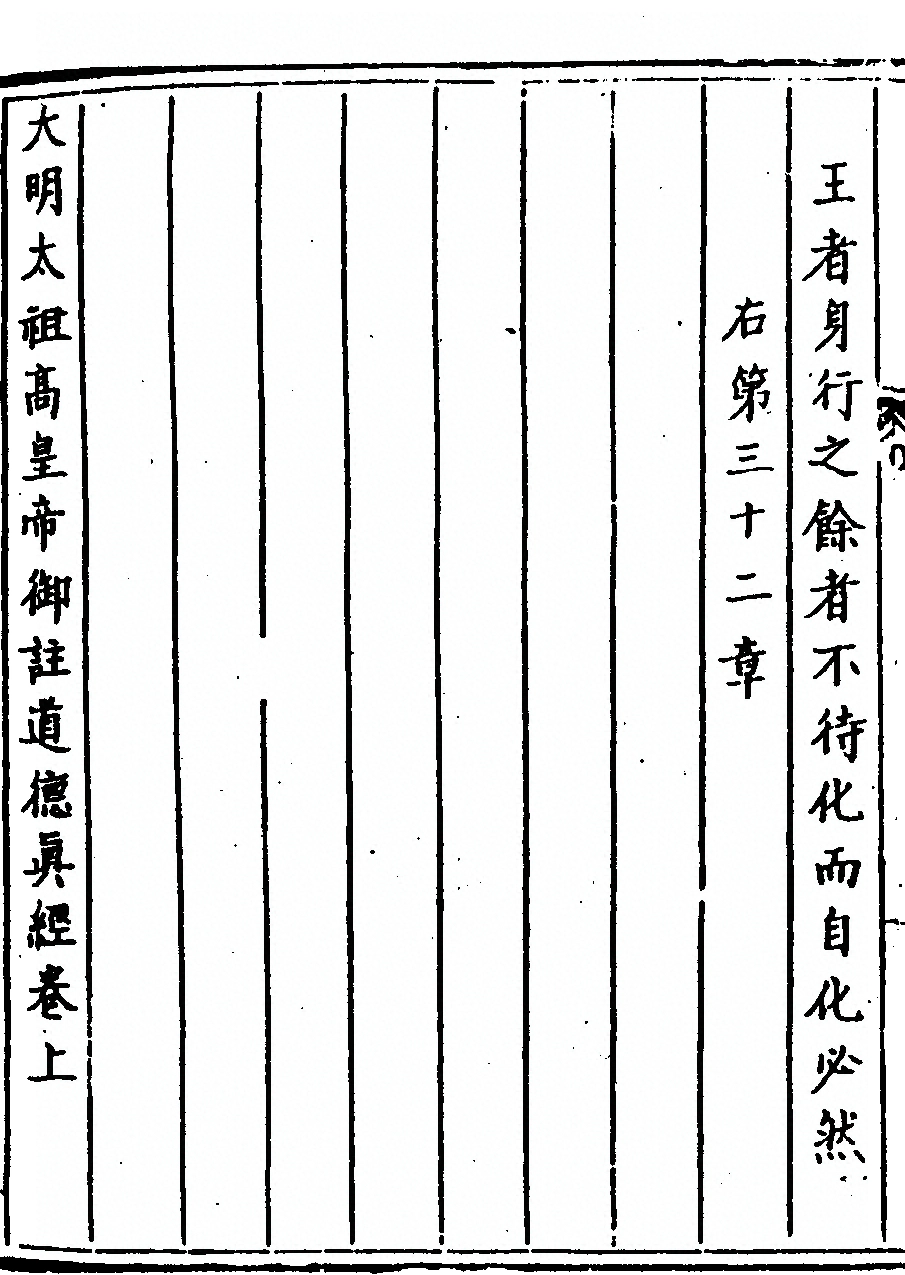 王者身行之餘者不待化而自化必然
右第三十二章
大明太祖高皇帝御註道德眞經卷上